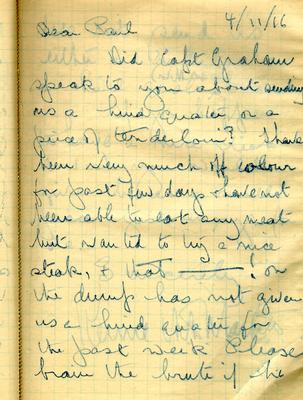 4/11/16
Dear Paul
Did Capt Graham
speak to you about sending
us a hind quater or a
piece of tenderloin? I have
been very much off colour
for past few days & have not
been able to eat any meat
but wanted to try a nice
steak, & that ——— ! on
the dump has not given
us a hind quater for
the past week Please
brain the brute if he